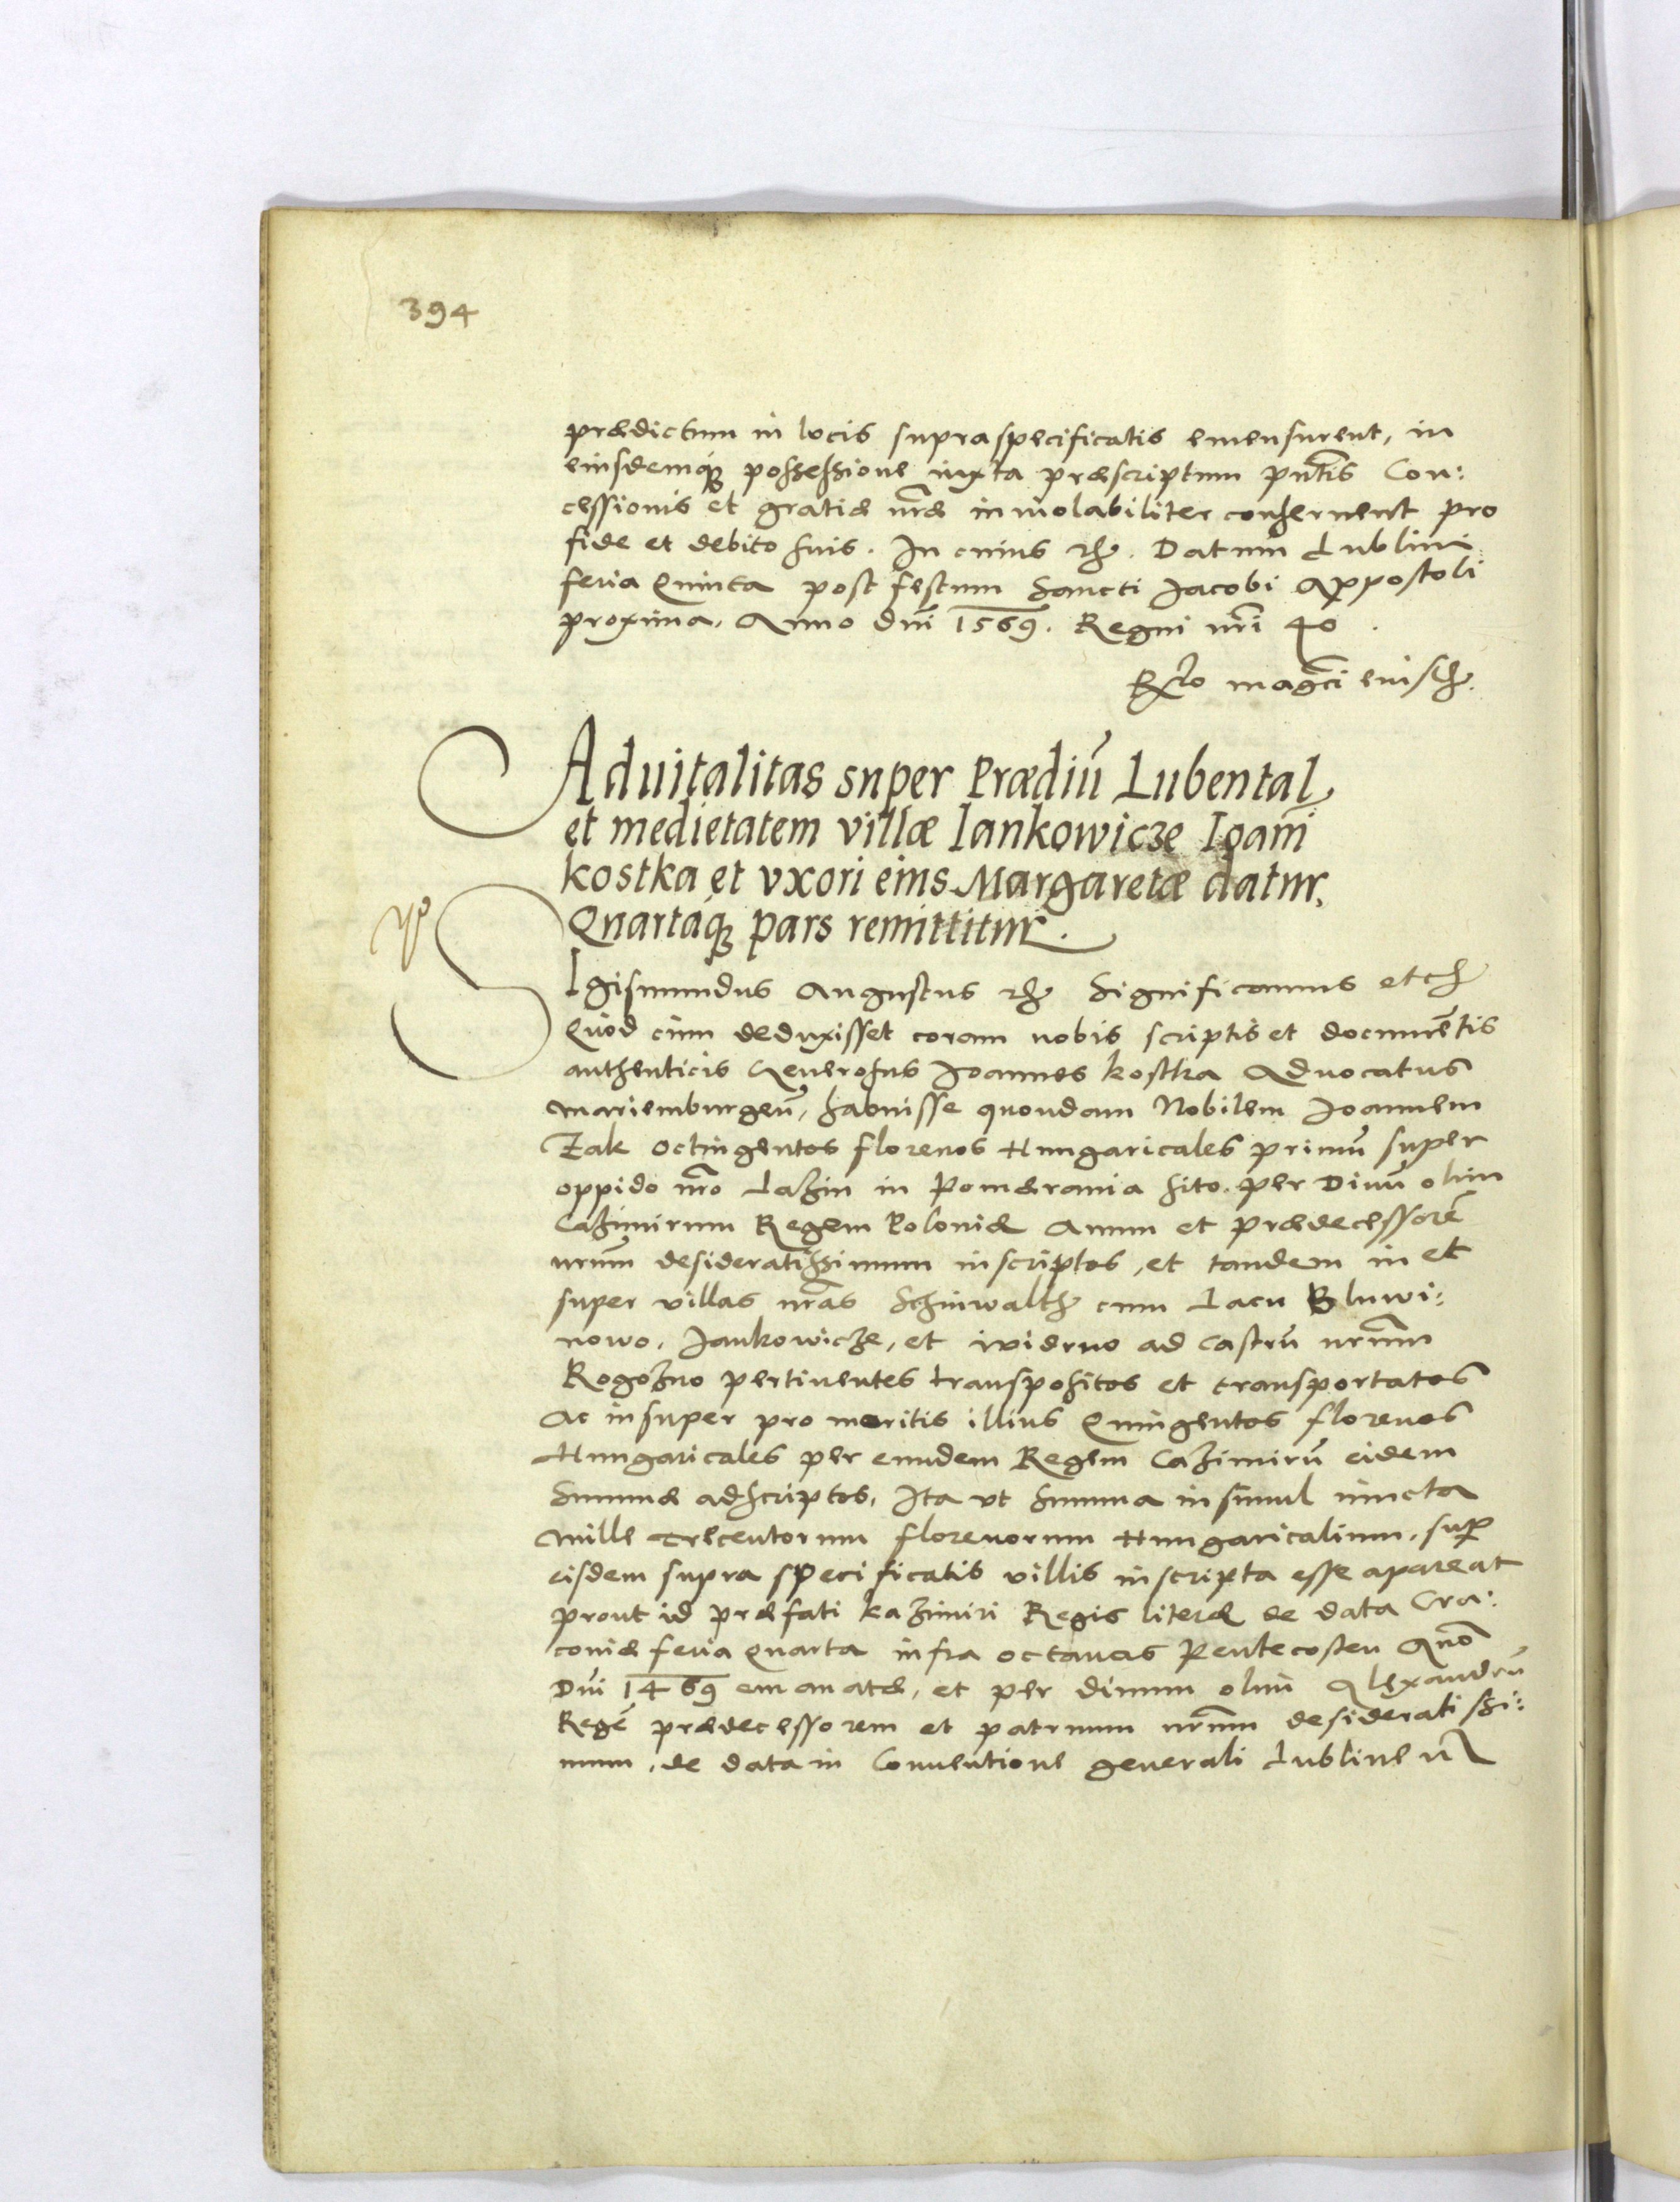 394
prædictum in locis supraspecificatis emensurent, in
eiusdemq₃ possessione iuxta præscriptum pñtis Con:
cessionis et gratiæ nr̃æ inuiolabiliter conseruent pro
fide et debito suis. In cuius rhẽ. Datum Lublini
feria Quinta post festum Sancti Jacobi Appostoli
proxima. Anno Dñi 1569. Regni nr̃i 40.
R̃lo magc̃i eiusdẽ.
Aduitalitas super Prædiũ Lubental
et medietatem villæ Iankowicze Ioañi
kostka et vxori eius Margaretæ datur,
Quartaq₃ pars remittitur.
SIgismundus Augustus rhẽ Significamus etcẽ
Quod cum deduxisset coram nobis scriptis et documẽtis
authenticis Generosus Joannes kostka Aduocatus
mariemburgeñ, habuisse quondam Nobilem Joannem
Zak octingentos florenos Hungaricales primũ super
oppido nr̃o Lazin in Pomærania sito per Diuũ olim
Cazimirum Regem Poloniæ Auum et prædecessorẽ
nrũm desideratissimum inscriptos, et tandem in et
super villas nr̃as Schinwalth cum Lacu Bluwi:
nowo, Jankowicze, et widrno ad castrũ nrũm
Rogozno pertinentes transpositos et transportatos
Ac insuper pro meritis illius Quingentos florenos
Hungaricales per eundem Regem Cazimirũ eidem
Summæ adscriptos, Ita vt summa insimul iuncta
mille trecentorum florenorum Hungaricalium, sup̃
eisdem supra specificatis villis inscripta esse apareat
prout id præfati kazimiri Regis literæ de data Cra:
couiæ feria Quarta infra octauas Pentecosten Año
Dñi 1469 emanatæ, et per diuum olim Alexandrũ
Regẽ prædecessorem et patruum nrũm desideratissi:
mum, de data in Conuentione generali Lublineñ